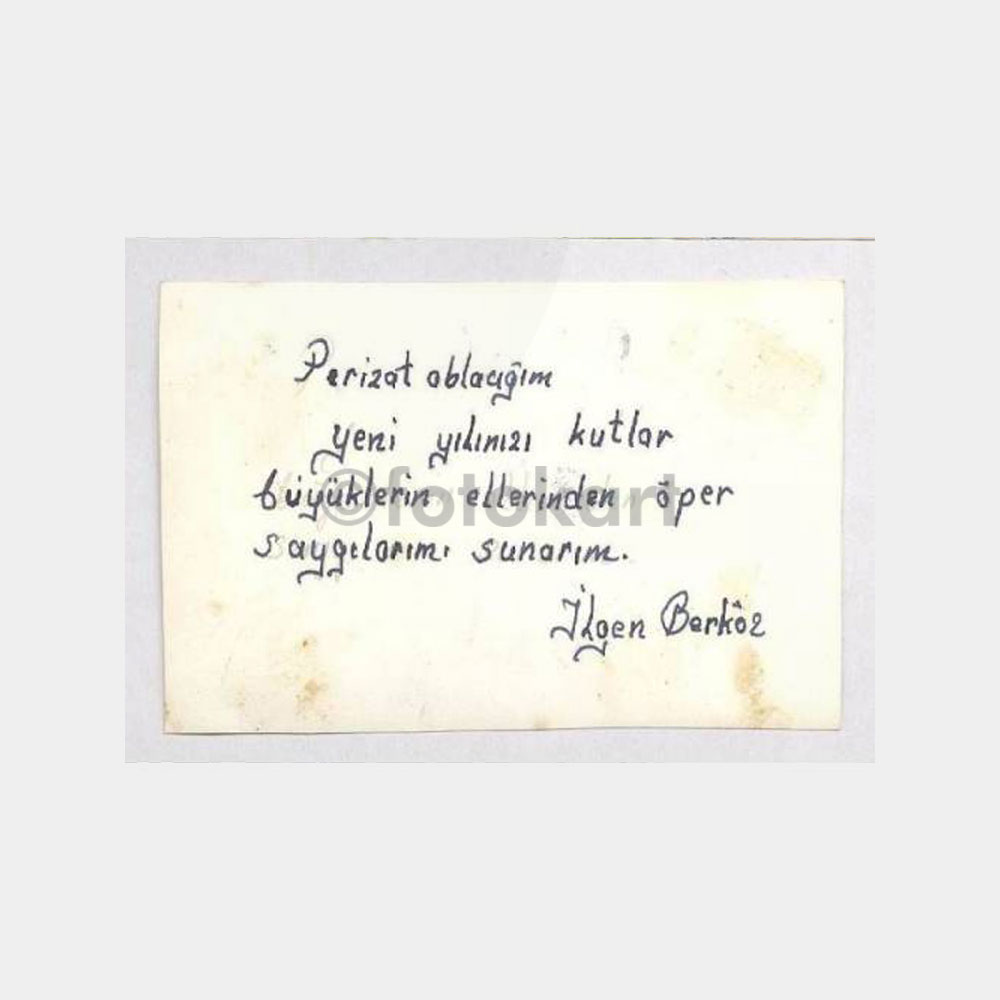 Perizat ablacığım
yeni yılınızı kutlar
büyüklerin ellerinden öper
©fotokart
saygılarımı sunarım.
İlgen Berköz